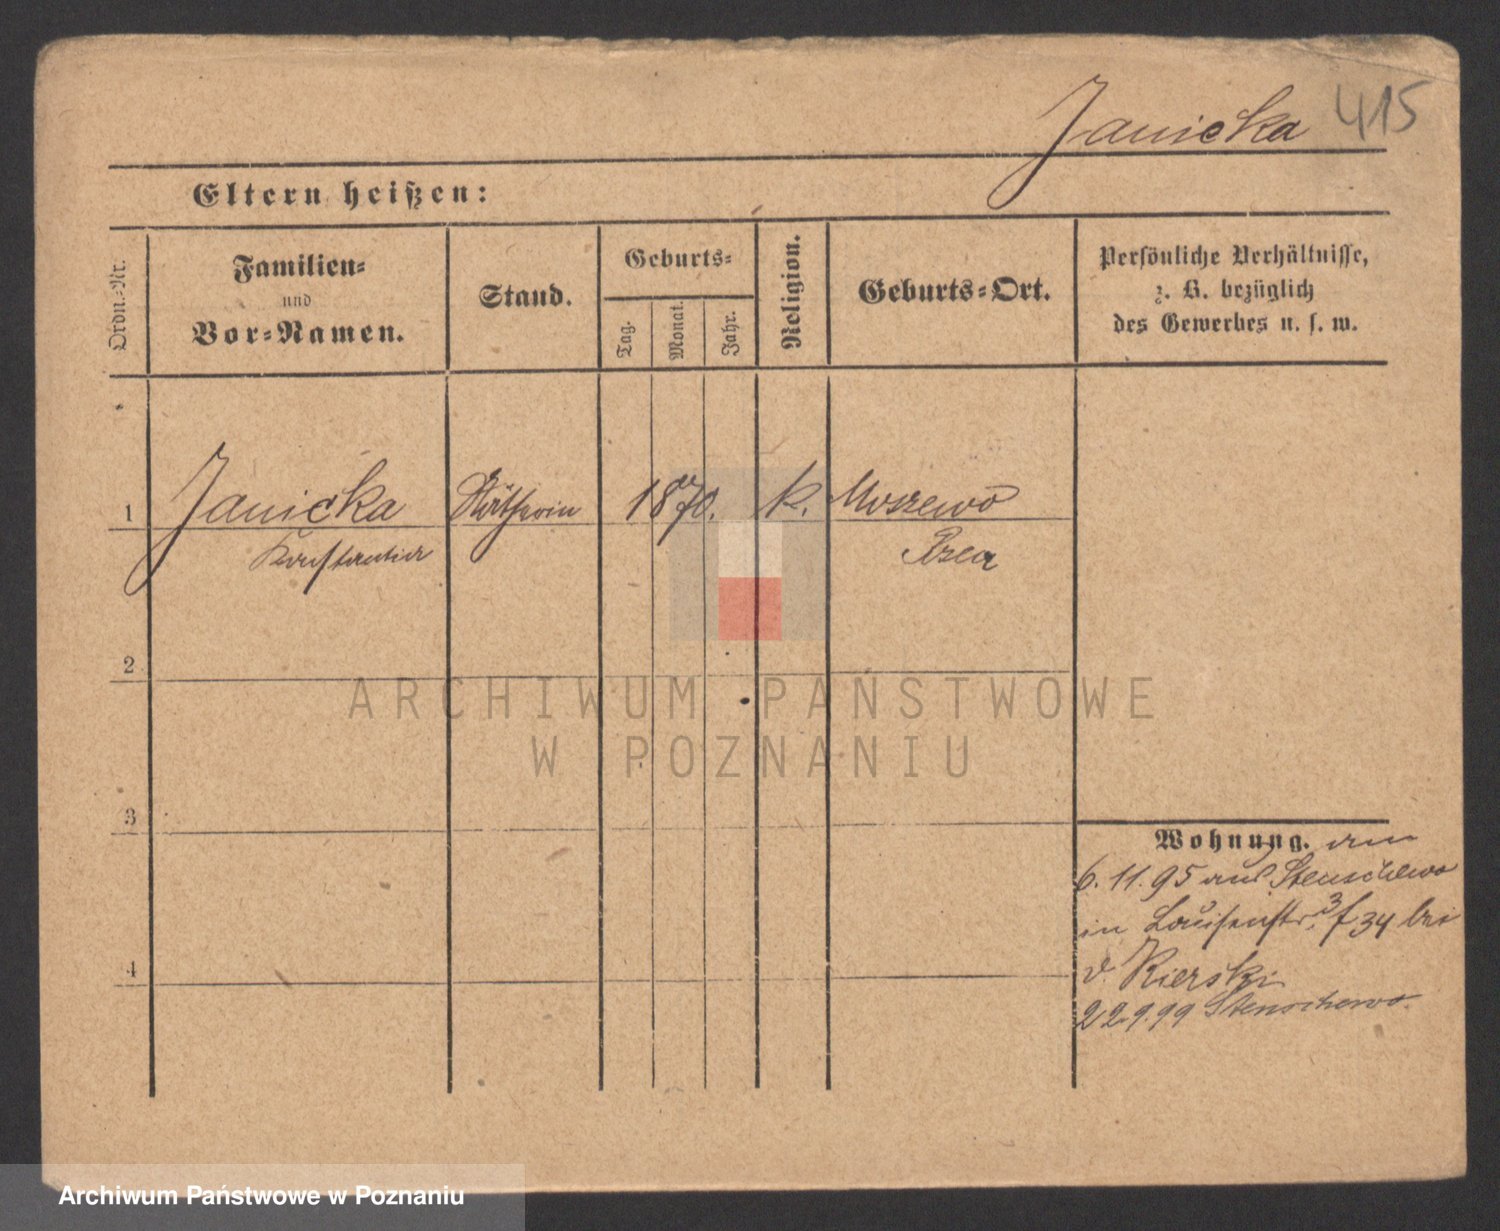 Janicka 415
Eltern heißen:
Ordn.-Nr.
Familien-
und
Vor-Namen.
Stand.
Geburts-
Tag.
Monat.
Jahr.
Religion.
Geburts-Ort.
Persönliche Verhältnisse,
z. B. bezüglich
des Gewerbes u. s. w.
1 Janicka 1870. k.
Konstantia
2
3
4
Wohnung. am
6.11.95 aus Stenschewo
in Louisenstr. 3 f 34 bei
v. Kierski
22.9.99 Stenschewo.
ARCHIWUM PAŃSTWOWE
W POZNANIU
Archiwum Państwowe w Poznaniu